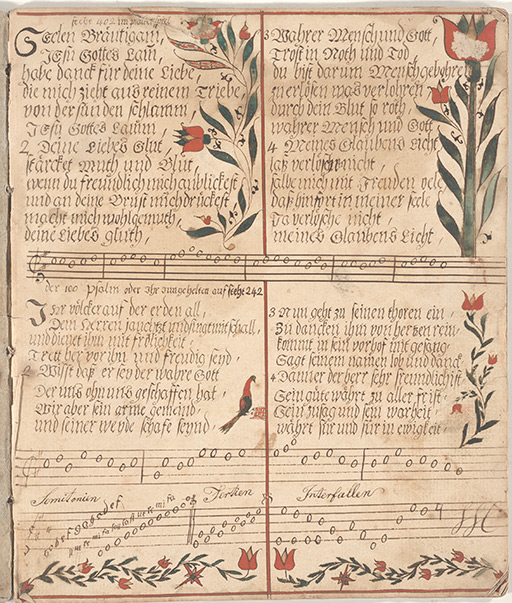 Seelen Bräutigam,
JEsu Gottes Lam̄,
habe danck für deine Liebe,
die mich zieht aus reinem Triebe
von der sünden schlamm,
JEsu Gottes Lam̄,
2 Deine Liebes Glut,
stärcket Muth und Blut,
wenn du freundlich mich anblickest
und an deine Brust mich drückest
macht mich wohlgemuth,
deine Liebes gluth,
3 Wahrer Mensch und Gott,
Trost in Noth und Tod
Du bist darum Mensch gebohren
zu erlösen was verlohren
durch dein Blut so roth,
wahrer Mensch und Gott
4 Meines Glaubens Licht
laß verlöschen nicht,
salbe mich mit Freuden oele,
daß hinfort in meiner seele
Ja verlösche nicht,
meines Glaubens Licht,
der 100 psalm oder Ihr aufgehelten auf seite 242
Ihr völcker auf der erden all,
Dem Herren jauchtzt und singt mit schall,
und dienet ihm mit frölichkeit,
Trett her vor ihn und freudig seyd,
2 Wisst daß er sey der wahre Gott
Der uns ohn uns geschaffen hat,
Wir aber sein arme gemeind,
und seiner weyde schafe seynd
3 Nun geht zu seinen thoren ein,
Zu dancken ihm von hertzen rein
kommt in sein vorhof mit gesang
Sagt seinem namen lob und danck
4 Dann er der herr sehr freundlich ist
Sein güte währt zu aller frist
Sein zusag und sein warheit,
währt für und für in ewigkeit,
Semitonien
Tertien
Interfallen